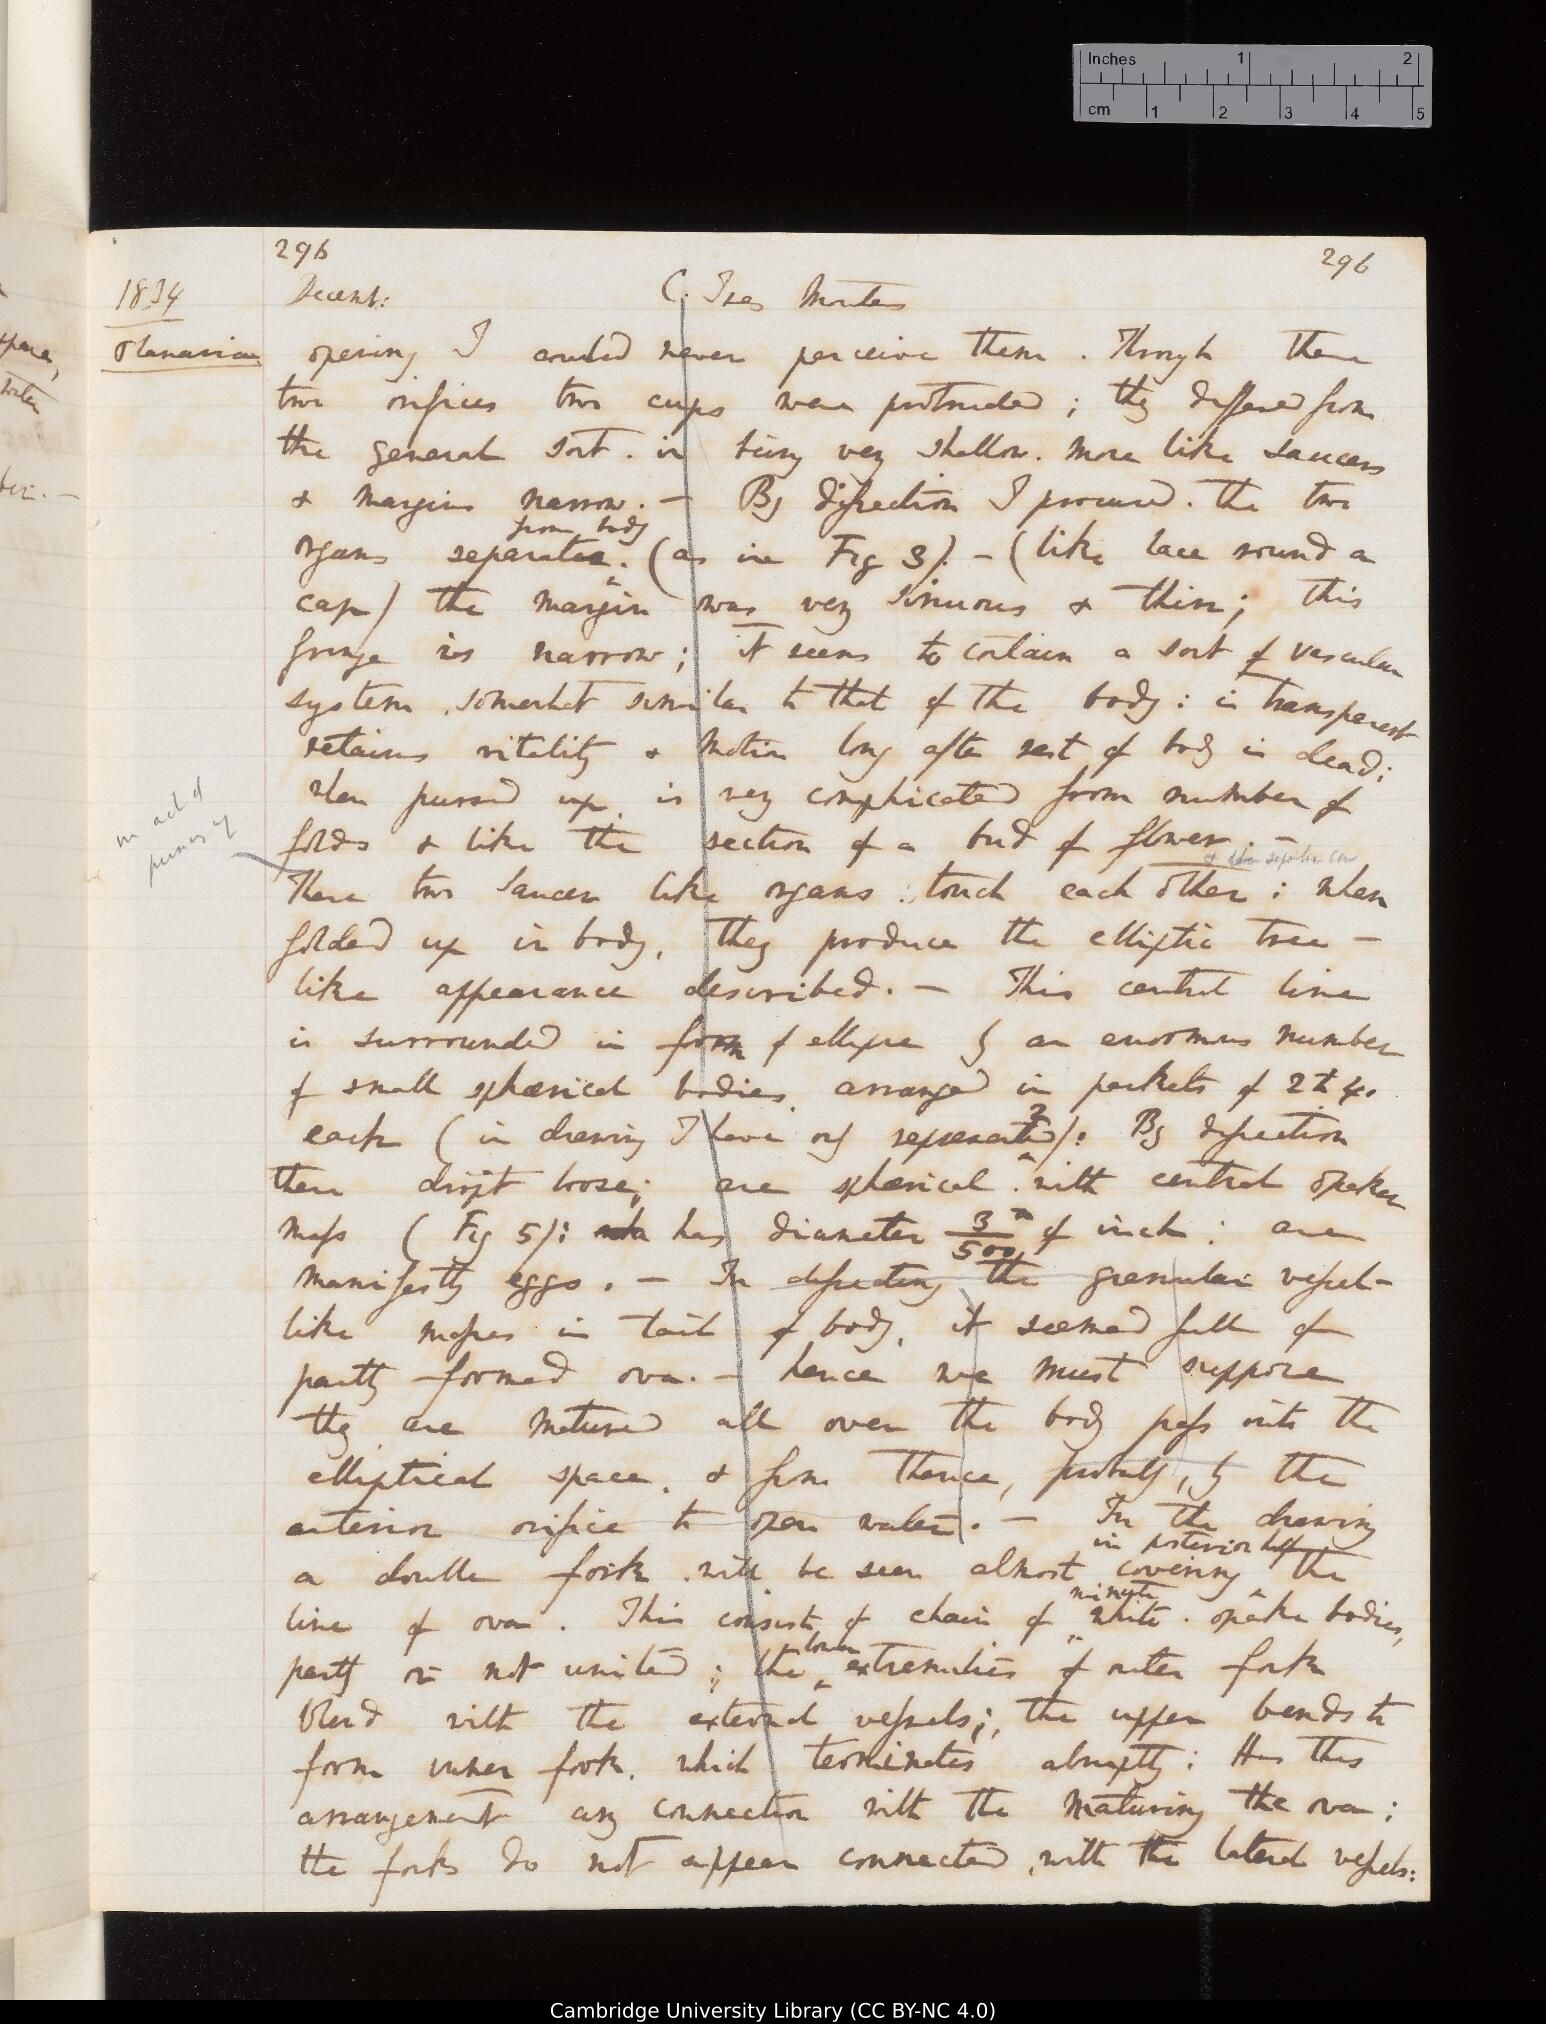 Inches 1 2
cm 1 2 3 4 5
296 296
1834 Decemb: C. Tres Montes
Planariae opening I could never perceive them. Through these
two orifices two cups were protruded; they differed from
the general sort. in being very shallow. more like saucers
& margins narrow. — By dissection I procured. the two
from body
organs separate. (as in Fig 3). — (like lace round a
cap) the margin was very sinuous & thin; this
fringe is narrow; it seems to contain a sort of vascular
system, somewhat similar to that of the body: is transparent
retains vitality & motion long after rest of body is dead;
when pursed up, is very complicated from number of
in act of
pursing up
folds & like the section of a bud of flower. —
These two saucer like organs touch each other: when
folded up in body, they produce the elliptic tree —
like appearance described. — This central line
is surrounded in form of ellipse by an enormous number
of small sphærical bodies, arranged in packets of 2 to 4.
each (in drawing I have only represented 2): By dissection
these dropt loose; are sphærical with central opaker
mass (Fig 5): has diameter 3/500th of inch: are
manifestly eggs. — In dissecting the granular vessel-
like masses in tail of body, it seemed full of
partly formed ova. — hence we must suppose
they are matured all over the body pass into the
elliptical space, & from thence, probably, by the
anterior orifice to open water. — In the drawing
in posterior half
a double fork will be seen almost covering the
minute
line of ova. This consists of chain of white opake bodies,
lower
partly or not united; the extremities of outer fork
blend with the external vessels; the upper bends to
form inner fork, which terminates abruptly: Has this
arrangement any connection with the maturing the ova;
the forks do not appear connected, with the lateral vessels:
Cambridge University Library (CC BY-NC 4.0)